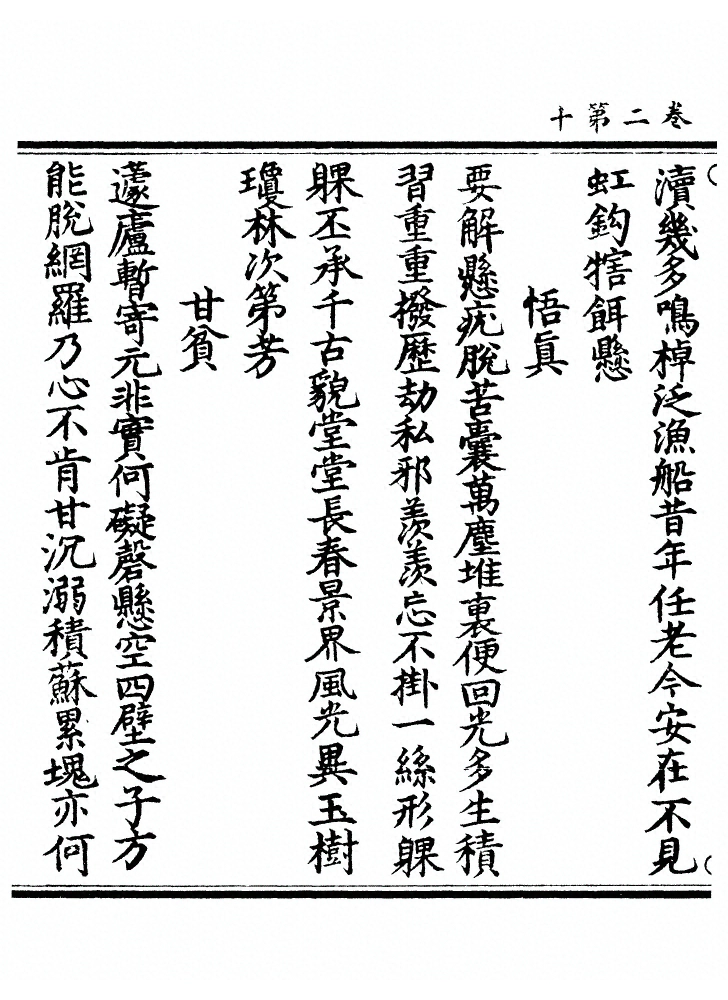 卷二第十
瀆幾多鳴棹泛漁船昔年任老今安在不見
虹鈎犗餌懸
悟眞
要解懸疣脫苦囊萬塵堆裏便回光多生積
習重重撥歷劫私邪羡羡忘不掛一絲形躶
躶丕承千古貌堂堂長春景界風光異玉樹
瓊林次第芳
甘貧
蘧廬暫寄元非實何礙磬懸空四壁之子方
能脫網羅乃心不肯甘沉溺積蘇累塊亦何